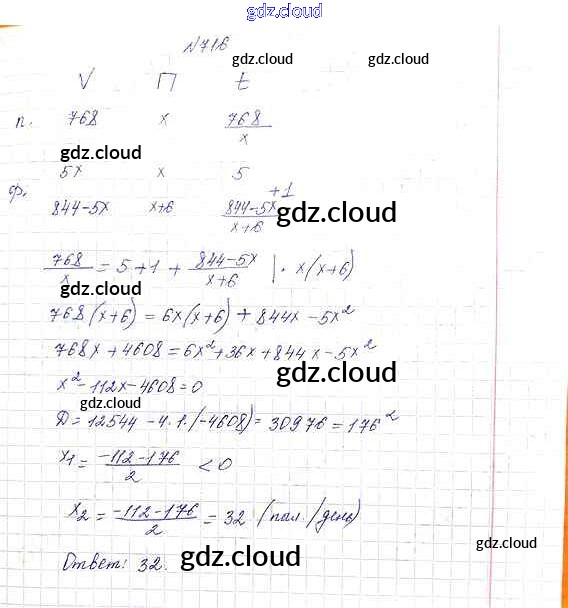 gdz.cloud
N 716
gdz.cloud gdz.cloud
V П t
п. 768 x 768/x
gdz.cloud
ф. 5x x 5
+1
844-5x x+6 844-5x/x+6
gdz.cloud
768/x = 5+1 + 844-5x/x+6 | · x(x+6)
gdz.cloud
768(x+6) = 6x(x+6) + 844x - 5x²
768x + 4608 = 6x² + 36x + 844x - 5x²
gdz.cloud
x² - 112x - 4608 = 0
gdz.cloud
D = 12544 - 4·1·(-4608) = 30976 = 176²
x₁ = -112-176/2 < 0
x₂ = -112-176/2 = 32 (пал./день)
gdz.cloud
Ответ: 32.
gdz.cloud